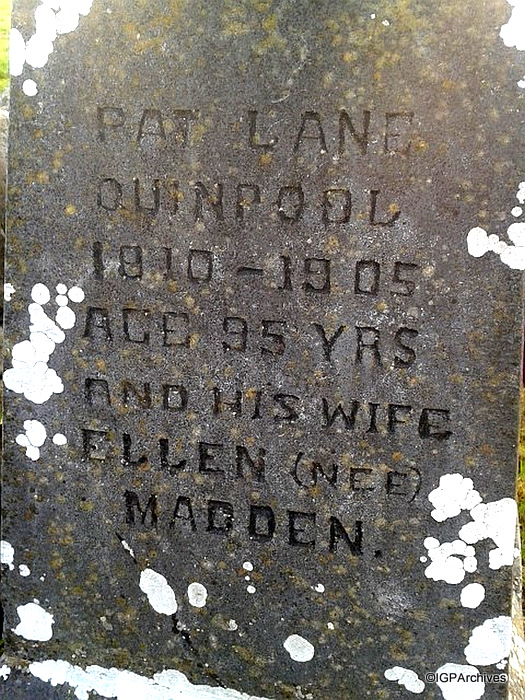 PAT LANE
QUINPOOL
1810-1905
AGE 95 YRS
AND HIS WIFE
ELLEN (NEE)
MADDEN.
©IGPArchives